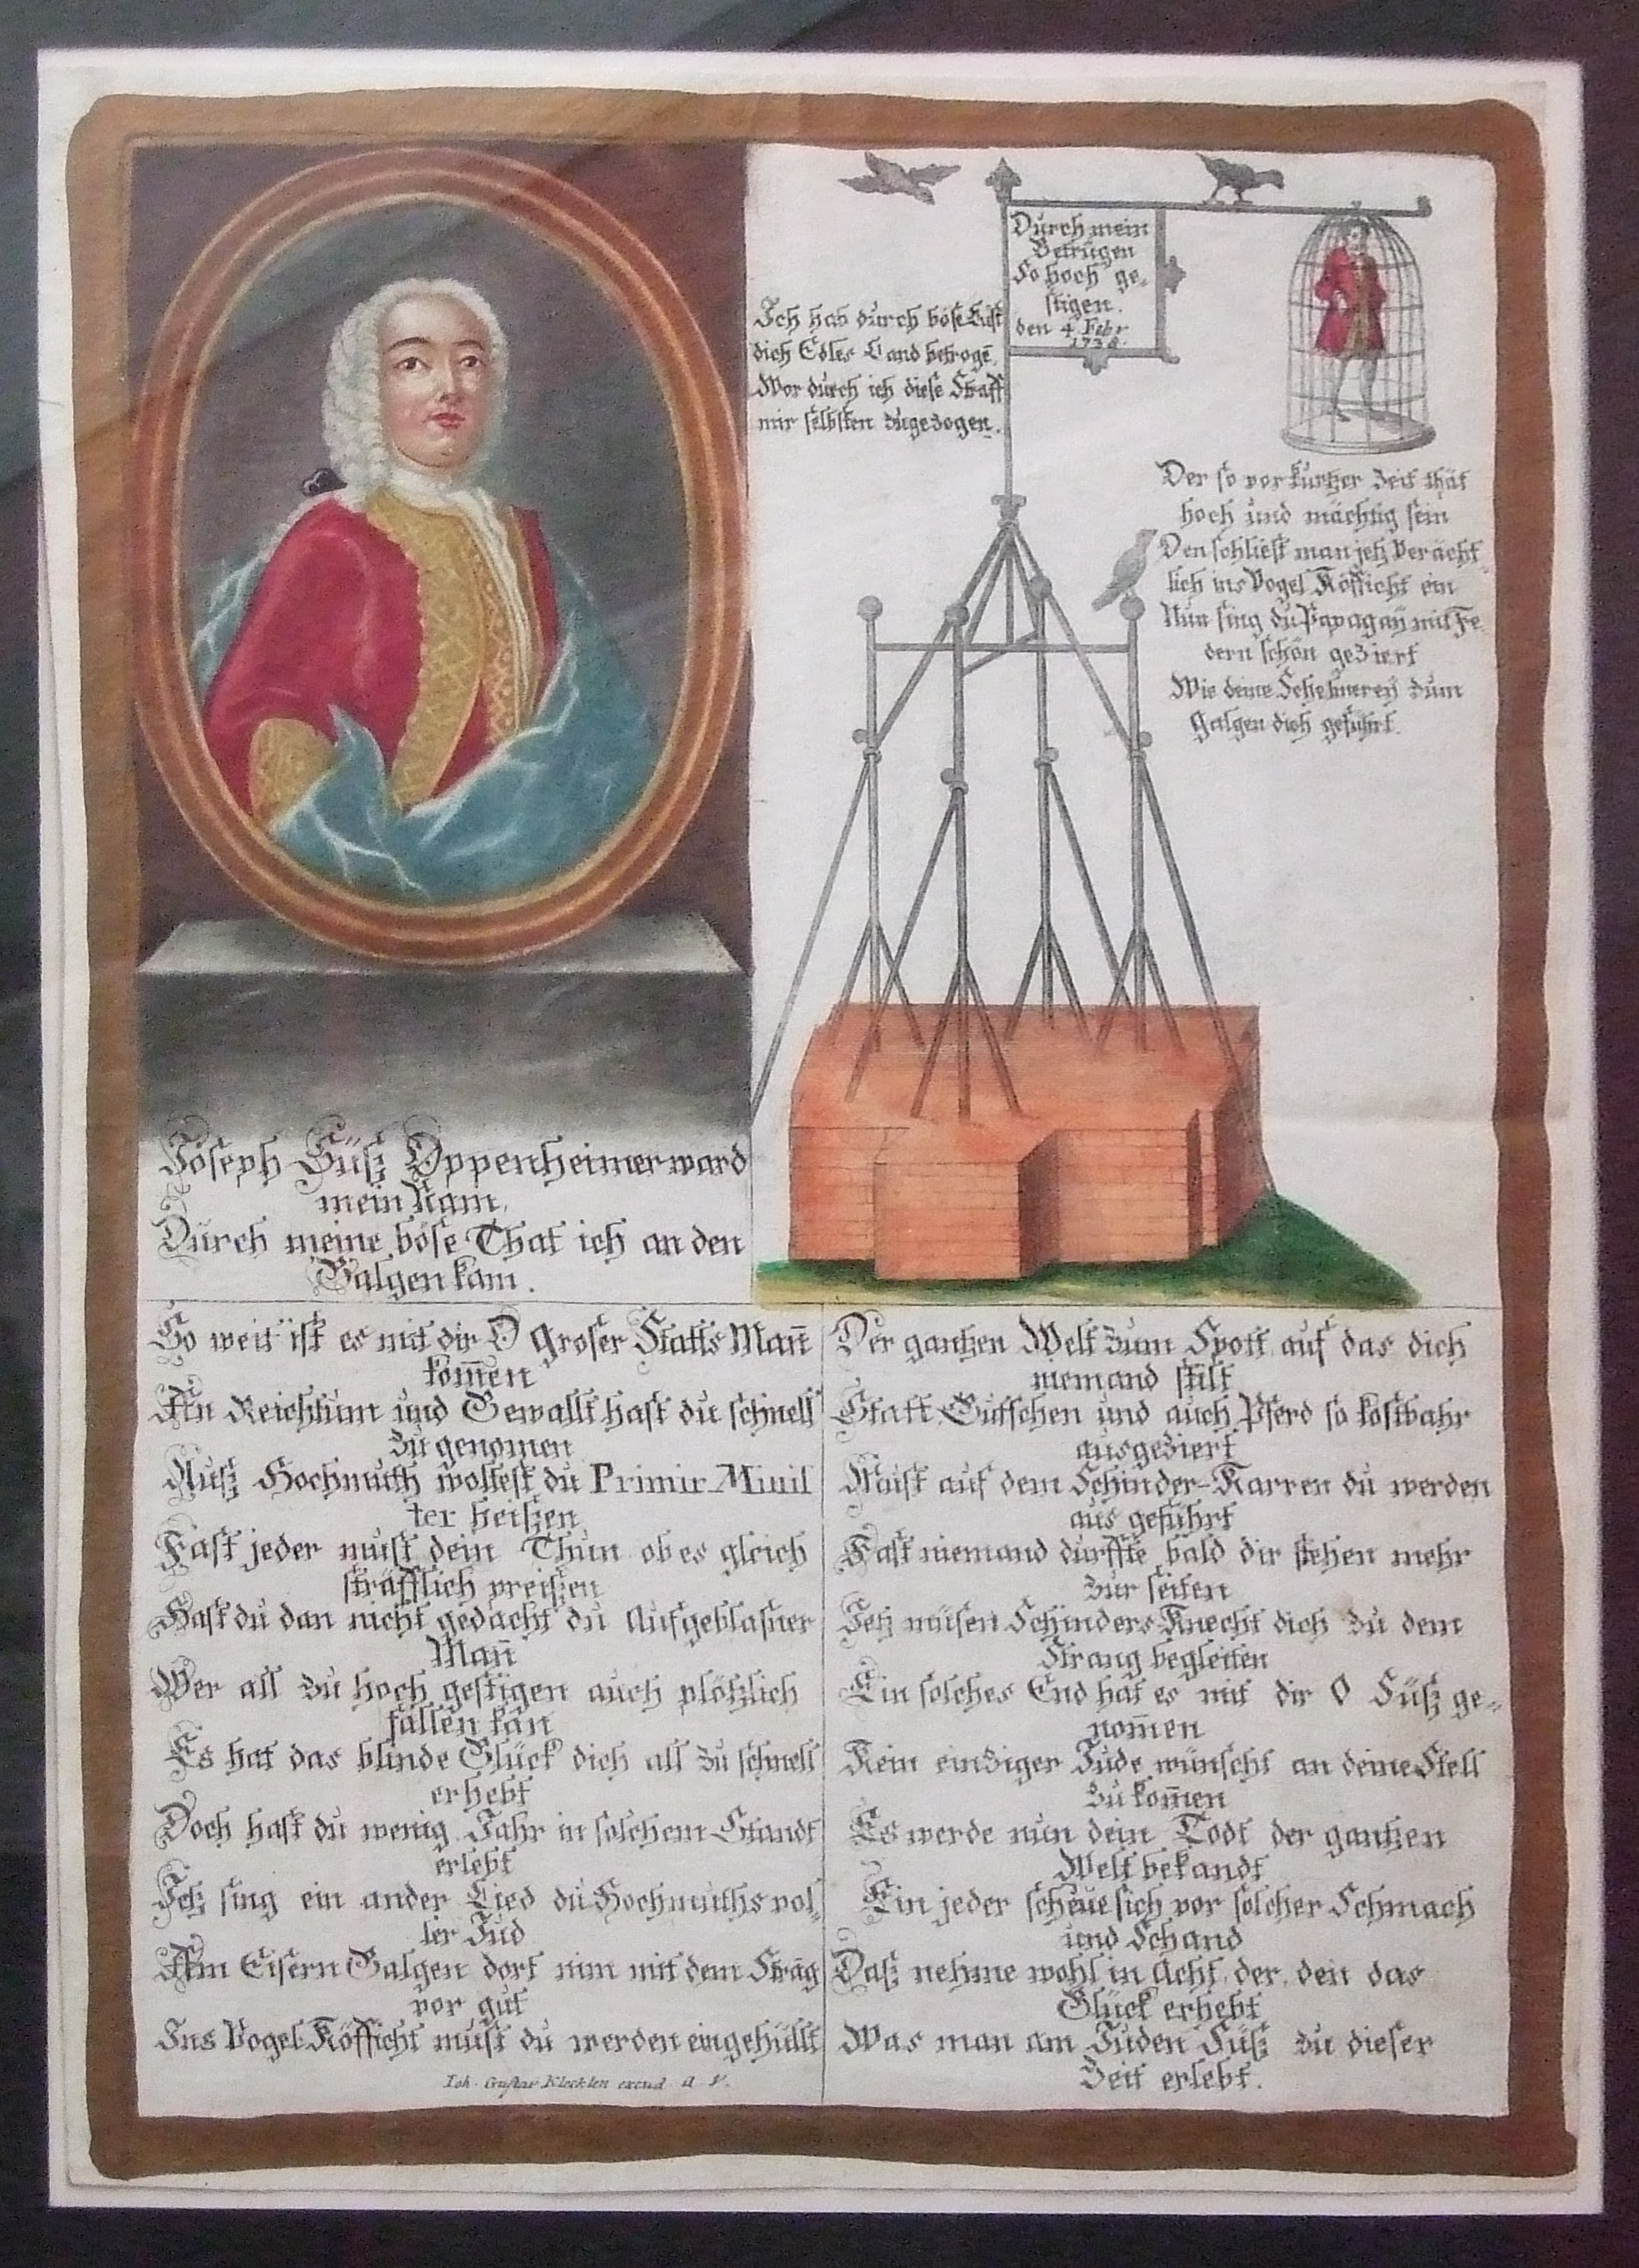 Durch mein
Betrügen
So hoch ge-
stigen.
den 4. Febr
1738.
Ich hab durch böse Lüst
dich Edles Land betrogē.
Wor durch ich diese Straff
mir selbsten zugezogen.
Der so vor kurtzer Zeit thät
hoch und mächtig sein
Den schliest man jetz verächt-
lich ins Vogel Köfficht ein
Nun sing du Papagaÿ mit Fe-
dern schön geziert
Wie deine Schelmereÿ zum
Galgen dich geführt.
Joseph Süß Oppenheimer ward
mein Nam,
Durch meine böse That ich an den
Galgen kam.
So weit ist es mit dir O groser Statts Mañ
kom̄en
An Reichtum und Gewallt hast du schnell
zu genomen
Auß Hochmuth woltest du Primir Minis
ter heißen
Fast jeder must dein Thun ob es gleich
sträfflich preißen
Hast du dan nicht gedacht du Aufgeblasner
Mañ
Wer all zu hoch gestigen auch plötzlich
fallen kan
Es hat das blinde Glück dich all zu schnell
erhebt
Doch hast du wenig Jahr in solchem Standt
erlebt
Jetz sing ein ander Lied du Hochmuths vol-
ler Jud
Am Eisern Galgen dort nim mit dem Strāg
vor gut
Ins Vogel Köfficht must du werden eingehüllt
Joh. Gustav Klecklen excud. a v.
Der gantzen Welt zum Spott auf das dich
niemand stilt
Statt Gutschen und auch Pferd so kostbahr
ausgeziert
Must auf dem Schinder-Karren du werden
aus geführt
Fast niemand durffte bald dir stehen mehr
zur seiten
Jetz müsen Schinders Knecht dich zu dem
Strang begleiten
Ein solches End hat es mit dir O Süß ge-
nom̄en
Kein einziger Jude wünscht an deine Stell
zu kom̄en
Es werde nun dein Todt der gantzen
Welt bekandt
Ein jeder scheue sich vor solcher Schmach
und Schand
Daß nehme wohl in Acht der, den das
Glück erhebt
Was man am Juden Süß zu dieser
Zeit erlebt.